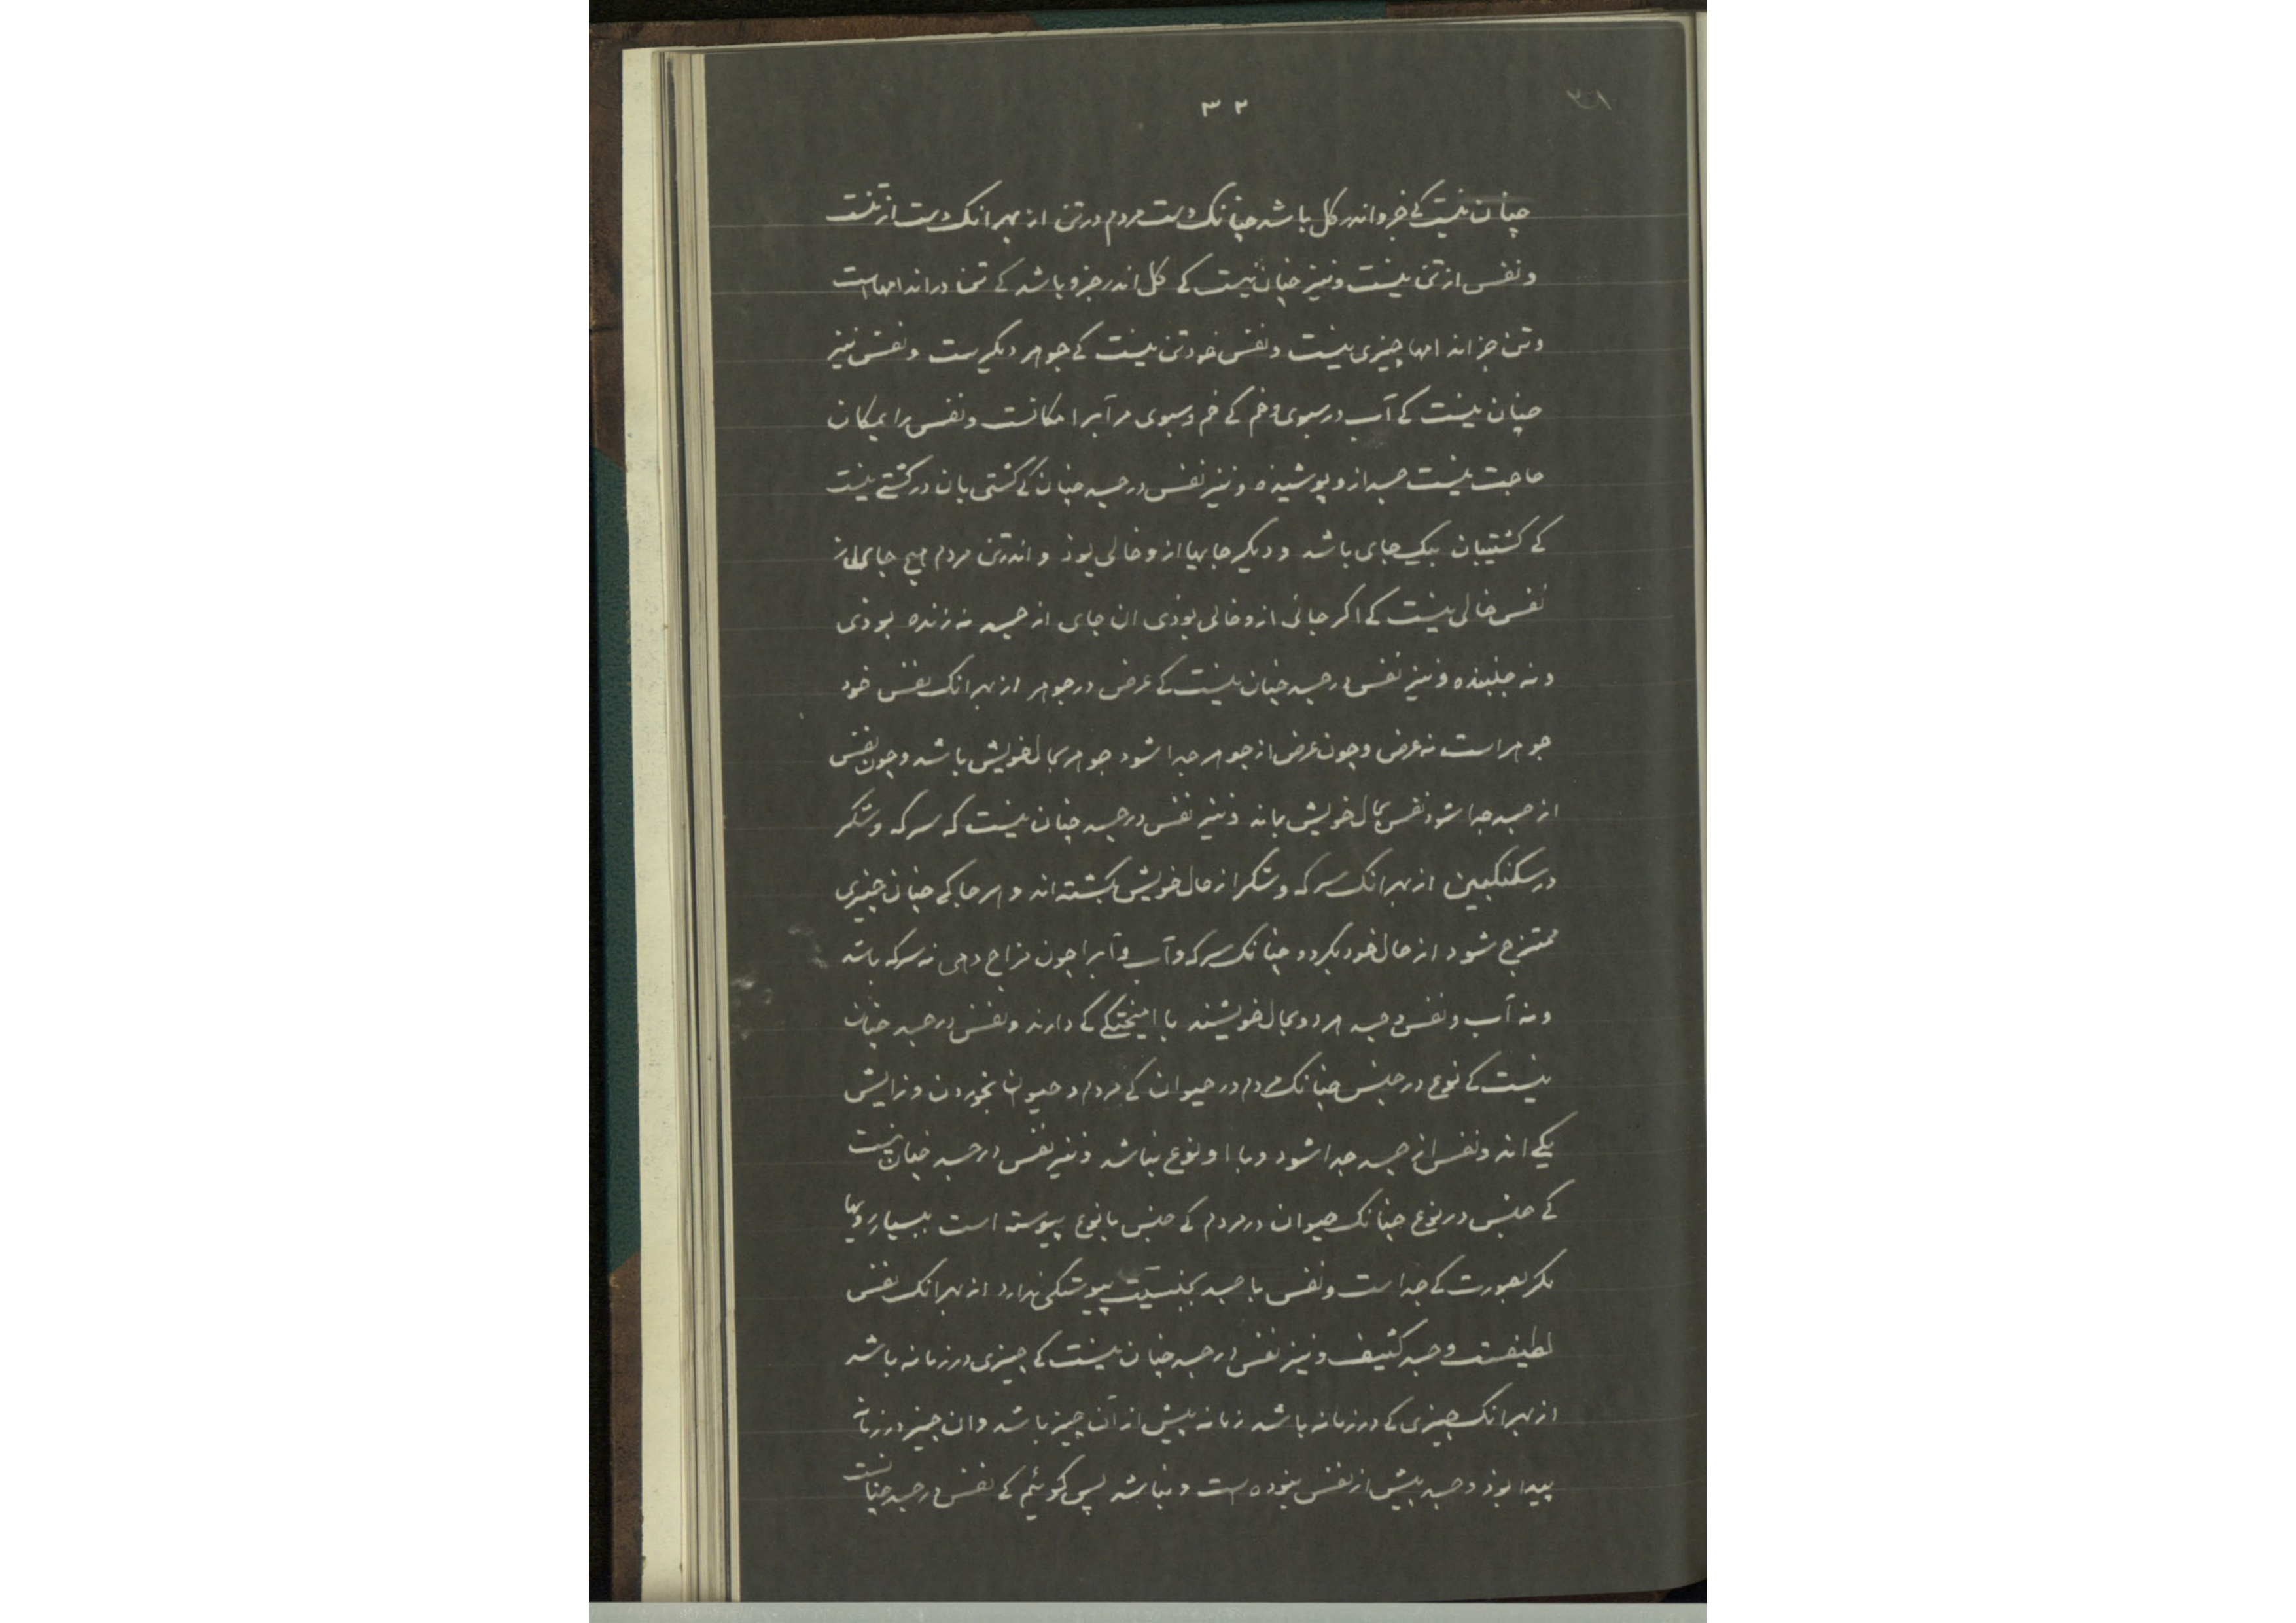 ۳۲
۳۱
چنان نیست کی جزو اندر کل باشد چنانک دست مردم در تن از بهر انک دست از تنست
و نفس از تن نیست و نیز چنان نیست کی کل اندر جزو باشد کی تن در اندامهاست
و تن جز اندامها چیزی نیست و نفس خود تن نیست کی جوهر دیگرست و نفس نیز
چنان نیست کی آب در سبوی و خم کی خم و سبوی مر آبرا مکانست و نفس را بمکان
حاجت نیست جسد ازو پوشیده و نیز نفس در جسد چنان کی کشتی بان در کشتی نیست
کی کشتیبان بیک جای باشد و دیگر جایها ازو خالی بوذ و اندر تن مردم هیچ جای از
نفس خالی نیست کی اکر جائی ازو خالی بوذی ان جای از جسد نه زنده بوذی
و نه جنبنده و نیز نفس در جسد چنان نیست کی عرض در جوهر از بهر انک نفس خود
جوهر است نه عرض و چون عرض از جوهر جدا شود جوهر بحال خویش باشد و چون نفس
از جسد جدا شود نفس بحال خویش بماند و نیز نفس در جسد چنان نیست که سرکه و شکر
در سکنکبین از بهر انک سرکه و شکر از حال خویش بکشته اند و هر جا کی چنان چیزی
ممتزج شود از حال خود بکردد چنانک سرکه و آب و آبرا چون مزاج دهی نه سرکه باشد
و نه آب و نفس و جسد هر دو بحال خویشند با امیختکی کی دارند و نفس در جسد چنان
نیست کی نوع در جنس چنانک مردم در حیوان کی مردم و حیوان بخوردن و زایش
یکی اند و نفس از جسد جدا شود و با او نوع نباشد و نیز نفس در جسد چنان نیست
کی جنس در نوع چنانک حیوان در مردم کی جنس با نوع پیوسته است ببسیار رویها
مکر بصورت کی جداست و نفس با جسد بجنسیت پیوستکی ندارد از بهر انک نفس
لطیفست و جسد کثیف و نیز نفس در جسد چنان نیست کی چیزی در زمانه باشد
از بهر انک چیزی کی در زمانه باشد زمانه پیش از آن چیز باشد و ان چیز در زمانه
پیدا بوذ و جسد پیش از نفس نبوده است و نباشد پس کوئیم کی نفس در جسد چنانست